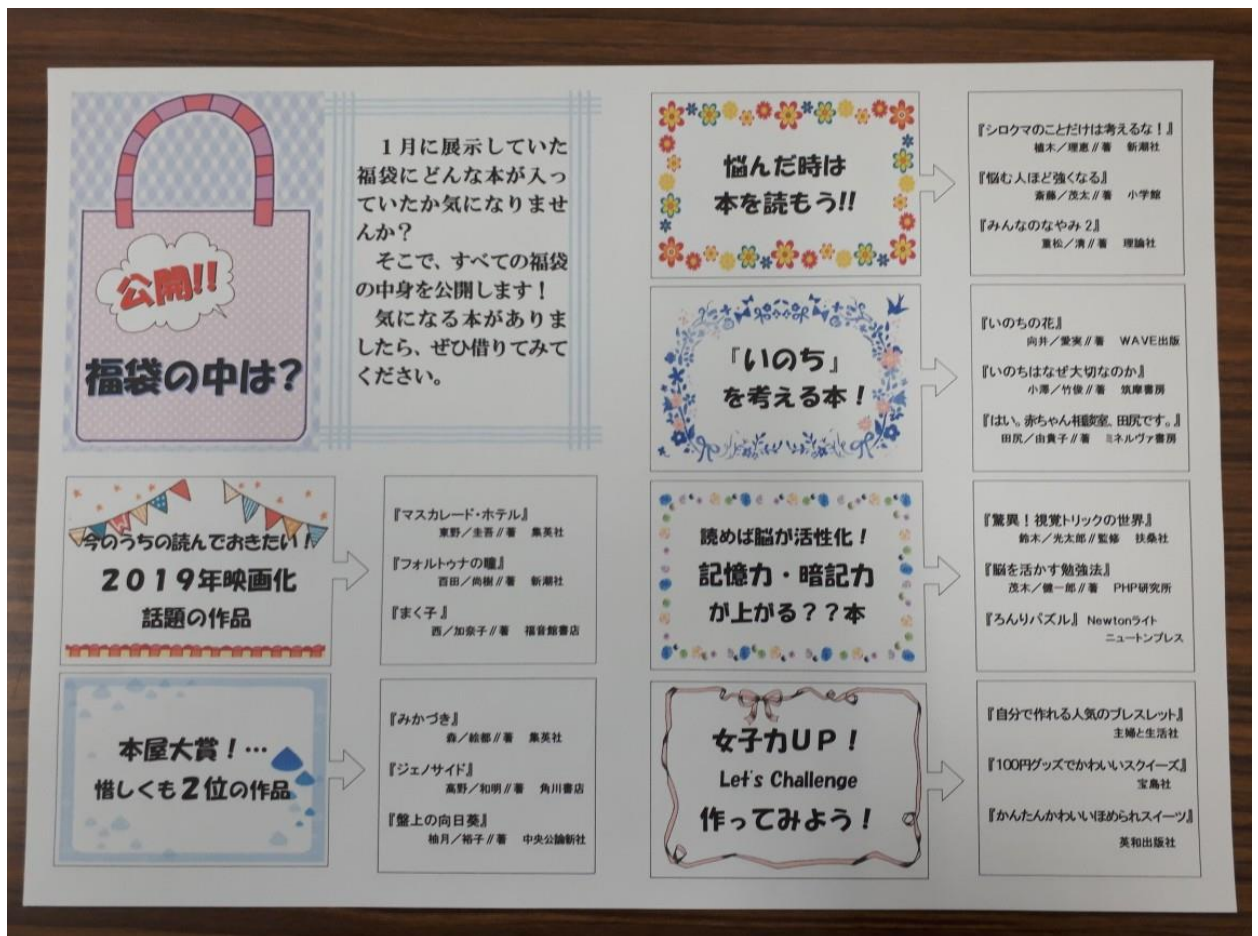 公開!!
福袋の中は?
1月に展示していた
福袋にどんな本が入っ
ていたか気になりませ
んか?
そこで、すべての福袋
の中身を公開します!
気になる本がありま
したら、ぜひ借りてみて
ください。
今のうちの読んでおきたい!
2019年映画化
話題の作品
『マスカレード・ホテル』
東野/圭吾//著 集英社
『フォルトゥナの瞳』
百田/尚樹//著 新潮社
『まく子』
西/加奈子//著 福音館書店
本屋大賞!…
惜しくも2位の作品
『みかづき』
森/絵都//著 集英社
『ジェノサイド』
高野/和明//著 角川書店
『盤上の向日葵』
柚月/裕子//著 中央公論新社
悩んだ時は
本を読もう!!
『シロクマのことだけは考えるな!』
植木/理恵//著 新潮社
『悩む人ほど強くなる』
斎藤/茂太//著 小学館
『みんなのなやみ 2』
重松/清//著 理論社
『いのち』
を考える本!
『いのちの花』
向井/愛実//著 WAVE出版
『いのちはなぜ大切なのか』
小澤/竹俊//著 筑摩書房
『はい。赤ちゃん相談室、田尻です。』
田尻/由貴子//著 ミネルヴァ書房
読めば脳が活性化!
記憶力・暗記力
が上がる??本
『驚異!視覚トリックの世界』
鈴木/光太郎//監修 扶桑社
『脳を活かす勉強法』
茂木/健一郎//著 PHP研究所
『ろんりパズル』 Newtonライト
ニュートンプレス
女子力UP!
Let's Challenge
作ってみよう!
『自分で作れる人気のブレスレット』
主婦と生活社
『100円グッズでかわいいスクイーズ』
宝島社
『かんたんかわいいほめられスイーツ』
英和出版社